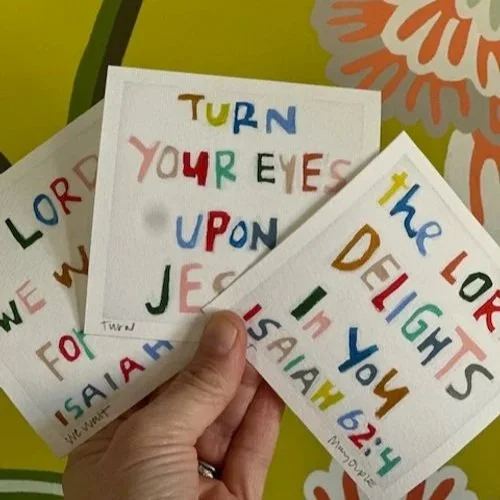 LORD
WE W
FOR
ISAIAH
We Wait
TURN
YOUR EYES
UPON
JES
Turn
the LORD
DELIGHTS
In YOU
ISAIAH 62:4